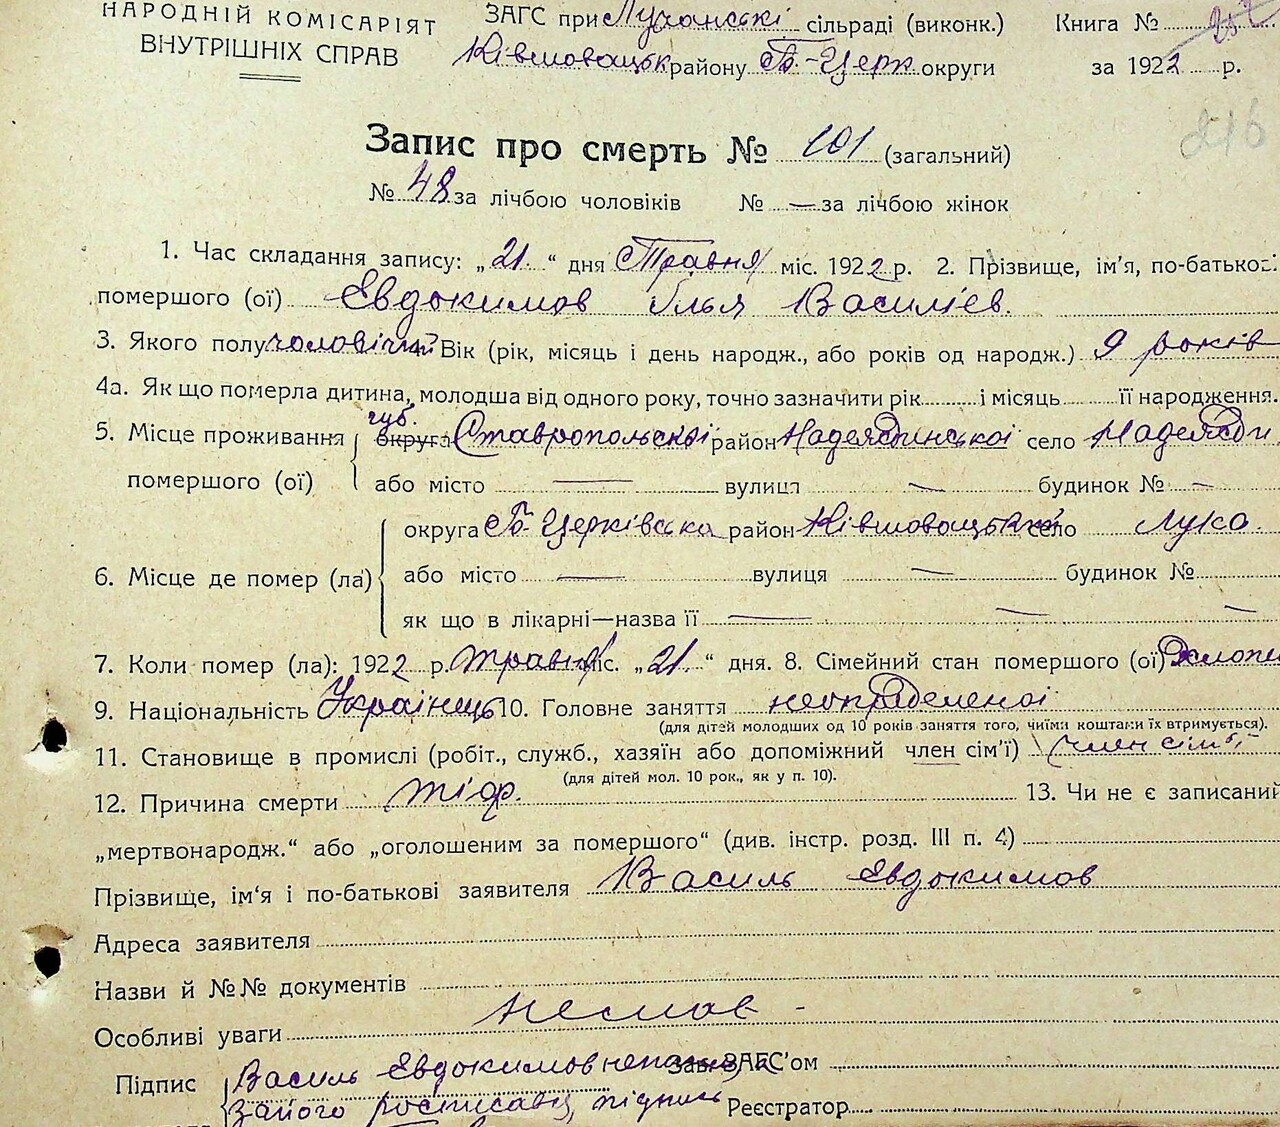 НАРОДНІЙ КОМІСАРІЯТ
ВНУТРІШНІХ СПРАВ
ЗАГС при Лучанські сільраді (виконк.) Книга №
Ківшовацьк району Б-Церк округи за 1922 р.
216
Запис про смерть № 101 (загальний)
№ 48 за лічбою чоловіків № — за лічбою жінок
1. Час складання запису: „21.“ дня Травня міс. 1922 р. 2. Прізвище, ім'я, по-батькові
помершого (ої) Евдокимов Ілья Василіев.
3. Якого полу чоловічий 4. Вік (рік, місяць і день народж., або років од народж.) 9 років
4а. Як що померла дитина, молодша від одного року, точно зазначити рік і місяць її народження.
губ.
5. Місце проживання округа Ставропольскої район Надеждинської село Надежди
помершого (ої) або місто — вулиця — будинок № —
округа Б-Церківська район Ківшовацький село Лука.
6. Місце де помер (ла) або місто — вулиця — будинок №
як що в лікарні—назва її — — —
7. Коли помер (ла): 1922 р. травня міс. „21.“ дня. 8. Сімейний стан помершого (ої) Хлопец
9. Національність Українець 10. Головне заняття неопределеної
(для дітей молодших од 10 років заняття того, чиїми коштами їх втримується).
11. Становище в промислі (робіт., служб., хазяїн або допоміжний член сім'ї) член сімї
(для дітей мол. 10 рок., як у п. 10).
12. Причина смерти тіф. 13. Чи не є записаний
„мертвонародж.“ або „оголошеним за помершого“ (див. інстр. розд. III п. 4)
Прізвище, ім'я і по-батькові заявителя Василь Евдокимов
Адреса заявителя
Назви й №№ документів
Особливі уваги немає -
Підпис Василь Евдокимов ЗАГС'ом
За його росписавсь, підпись Реєстратор